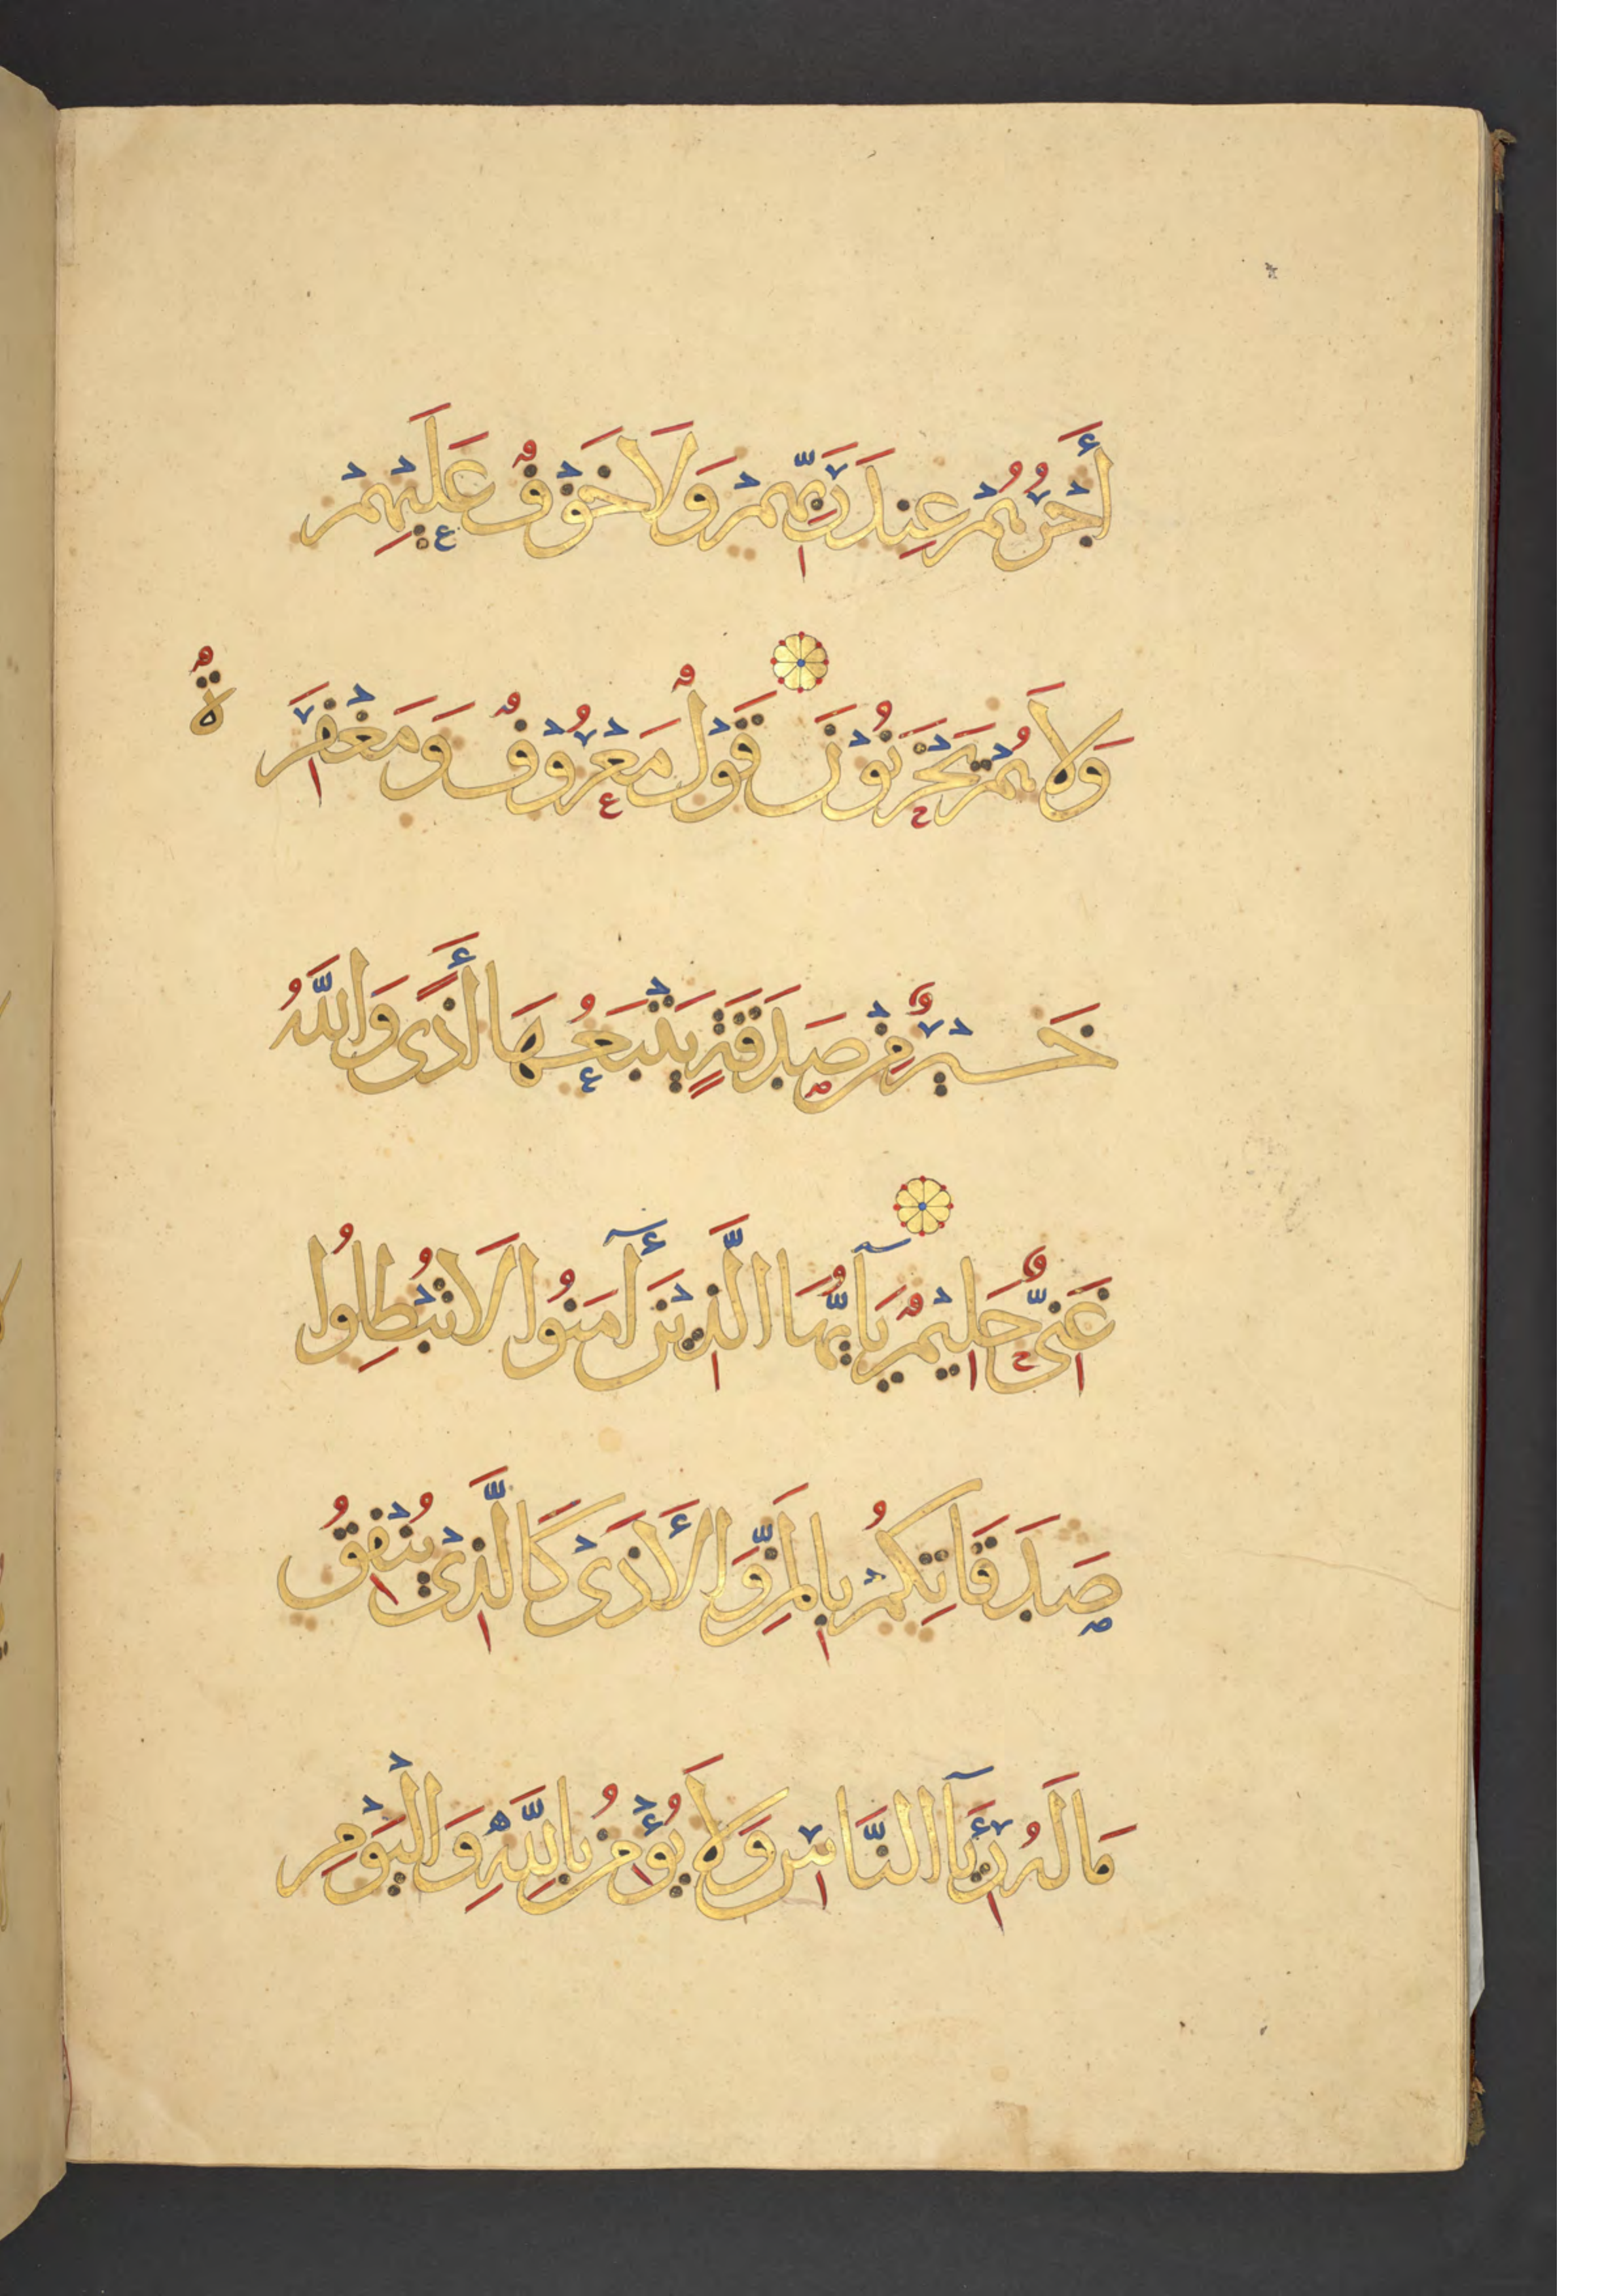 أَجْرُهُمْ عِندَ رَبِّهِمْ وَلَا خَوْفٌ عَلَيْهِمْ
وَلَا هُمْ يَحْزَنُوْنَ قَوْلٌ مَعْرُوْفٌ وَمَغْفِرَةٌ
خَيْرٌ مِنْ صَدَقَةٍ يَتْبَعُهَا أَذًى وَاللَّهُ
غَنِيٌّ حَلِيْمٌ يَآ أَيُّهَا الَّذِيْنَ آمَنُوا لَا تُبْطِلُوا
صَدَقَاتِكُمْ بِالْمَنِّ وَالْأَذَىْ كَالَّذِيْ يُنْفِقُ
مَالَهُ رِئَآءَ النَّاسِ وَلَا يُؤْمِنُ بِاللَّهِ وَالْيَوْمِ